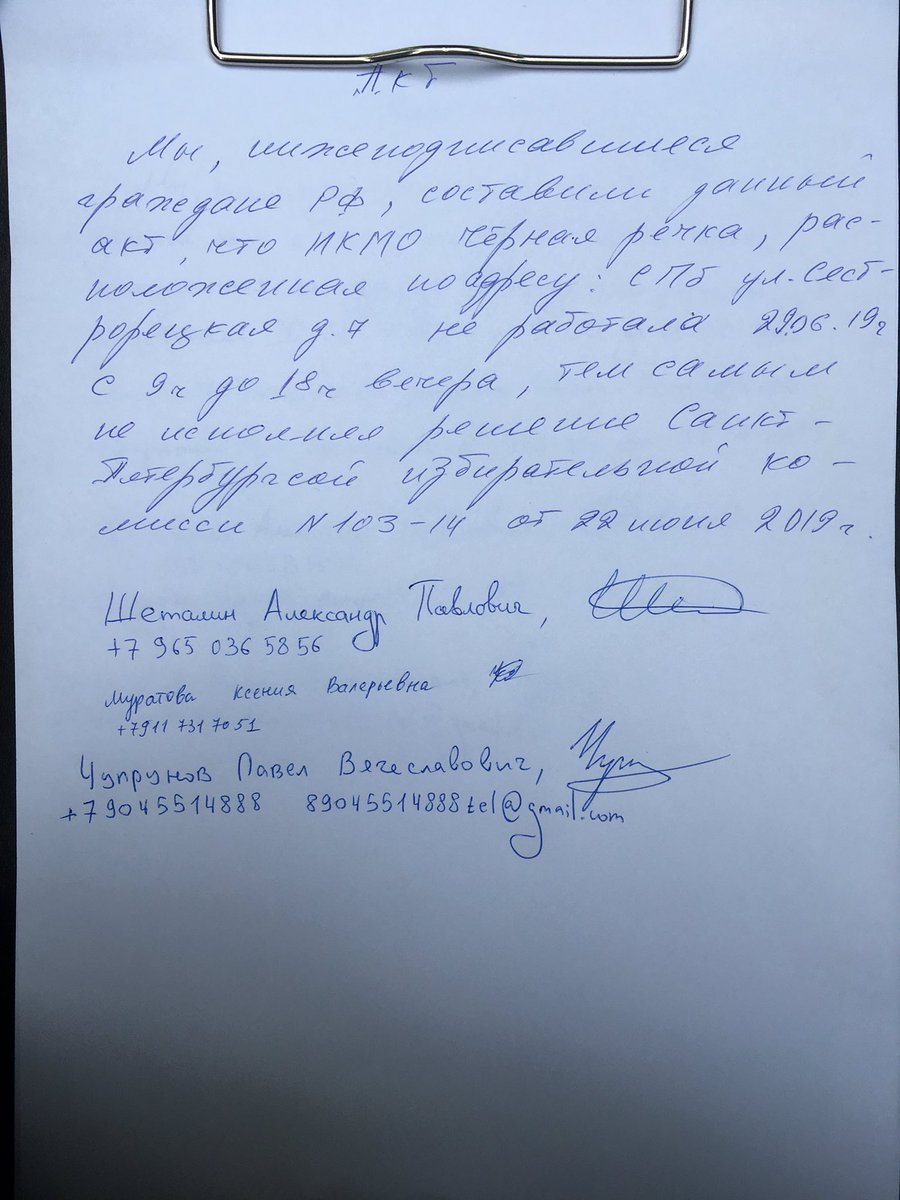 Акт
Мы, нижеподписавшиеся
граждане РФ, составили данный
акт, что ИКМО Чёрная речка, рас-
положенная по адресу: СПб ул. Сест-
рорецкая д. 7 не работала 29.06.19г
с 9ч до 18ч вечера, тем самым
не исполняя решение Санкт-
Петербургсой избирательной ко-
мисси N 103-14 от 22 июня 2019г.
Шеталин Александр Павлович,
+7 965 036 58 56
Муратова Ксения Валерьевна
+7911 731 70 51
Чупрунов Павел Вячеславович,
+79045514888 89045514888tel@gmail.com